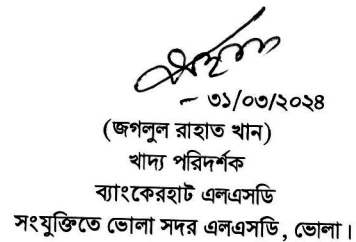 – ৩১/০৩/২০২৪
(জগলুল রাহাত খান)
খাদ্য পরিদর্শক
ব্যাংকেরহাট এলএসডি
সংযুক্তিতে ভোলা সদর এলএসডি, ভোলা।